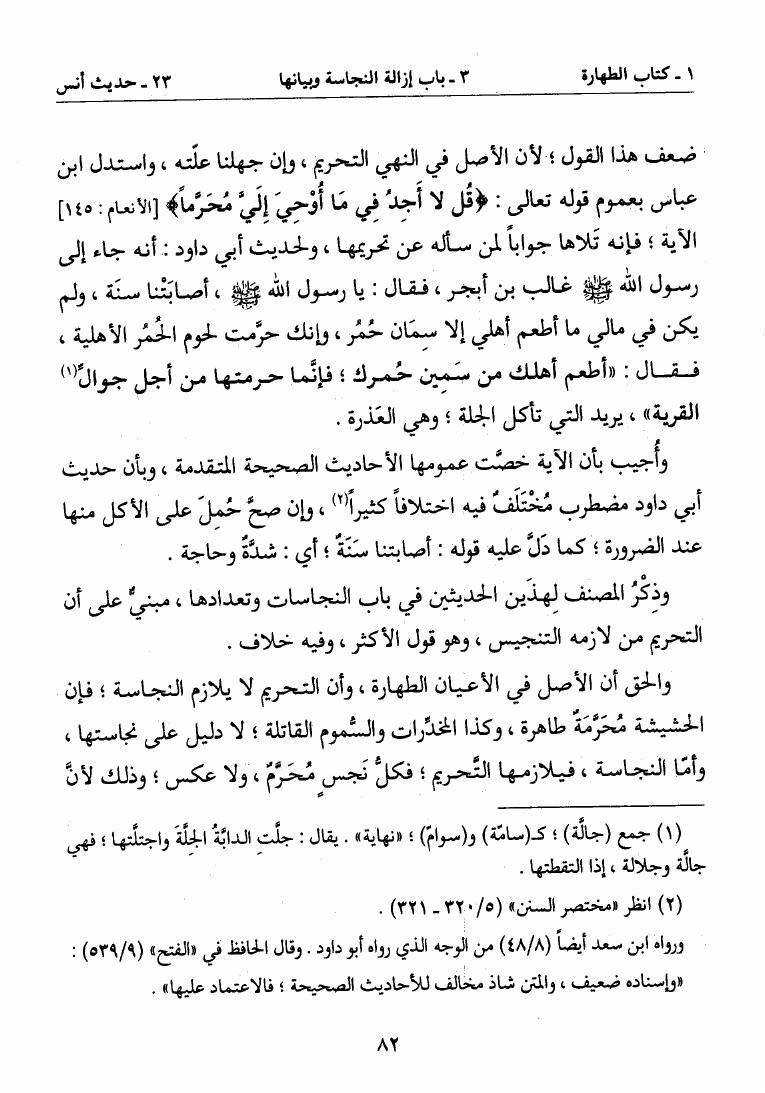 ١ ـ كتاب الطهارة ٣ ـ باب إزالة النجاسة وبيانها ٢٣ ـ حديث أنس
ضعف هذا القول ؛ لأن الأصل في النهي التحريم ، وإن جهلنا علّته ، واستدل ابن
عباس بعموم قوله تعالى : ﴿قُل لا أَجِدُ فِي مَا أُوْحِيَ إِلَيَّ مُحَرَّماً﴾ [الأنعام : ١٤٥]
الآية ؛ فإنه تَلاها جواباً لمن سأله عن تحريمها ، ولحديث أبي داود : أنه جاء إلى
رسول الله ﷺ غالب بن أبجر ، فقال : يا رسول الله ﷺ ، أصابَتْنا سنَة ، ولم
يكن في مالي ما أطعم أهلي إلا سمَان حُمُر ، وإنك حرَّمت لحوم الحُمُر الأهلية ،
فقال : «أطعم أهلك من سَمِين حُمرك ؛ فإنَّما حرمتها من أجل جوالِّ(١)
القرية» ، يريد التي تأكل الجلة ؛ وهي العَذرة .
وأُجيب بأن الآية خصَّت عمومها الأحاديث الصحيحة المتقدمة ، وبأن حديث
أبي داود مضطرب مُخْتَلَفٌ فيه اختلافاً كثيراً(٢) ، وإن صحَّ حُمِلَ على الأكل منها
عند الضرورة ؛ كما دَلَّ عليه قوله : أصابتنا سَنَةٌ ؛ أي : شدَّةٌ وحاجة .
وذِكْرُ المصنف لِهذَين الحديثين في باب النجاسات وتعدادها ، مبنيٌّ على أن
التحريم من لازمه التنجيس ، وهو قول الأكثر ، وفيه خلاف .
والحق أن الأصل في الأعيان الطهارة ، وأن التحريم لا يلازم النجاسة ؛ فإن
الحشيشة مُحَرَّمَةٌ طاهرة ، وكذا المخدِّرات والسُّموم القاتلة ؛ لا دليل على نجاستها ،
وأمّا النجاسة ، فيلازمها التَّحريم ؛ فكلُّ نَجسٍ مُحَرَّمٌ ، ولا عكس ؛ وذلك لأنَّ
(١) جمع (جالَّة) ؛ كـ(سامّة) و(سوامّ) ؛ «نهاية» . يقال : جلَّتِ الدابَّةُ الجِلَّةَ واجتلَّتها ؛ فهي
جالَّة وجلالة ، إذا التقطتها .
(٢) انظر «مختصر السنن» (٥/ ٣٢٠ ـ ٣٢١) .
ورواه ابن سعد أيضاً (٤٨/٨) من الوجه الذي رواه أبو داود . وقال الحافظ في «الفتح» (٥٣٩/٩) :
«وإسناده ضعيف ، والمتن شاذ مخالف للأحاديث الصحيحة ؛ فالاعتماد عليها» .
٨٢